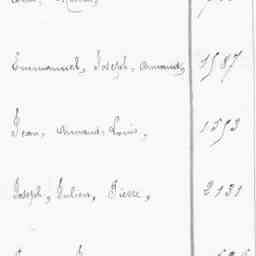 Emmanuel, Joseph, Armand, 1587
Jean, Armand, Louis, 1593
Joseph, Julien, Pierre, 2131